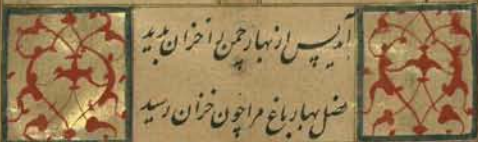 آمد پس از بهار چمن را خزان پدید
فصل بهار باغ مرا چون خزان رسید